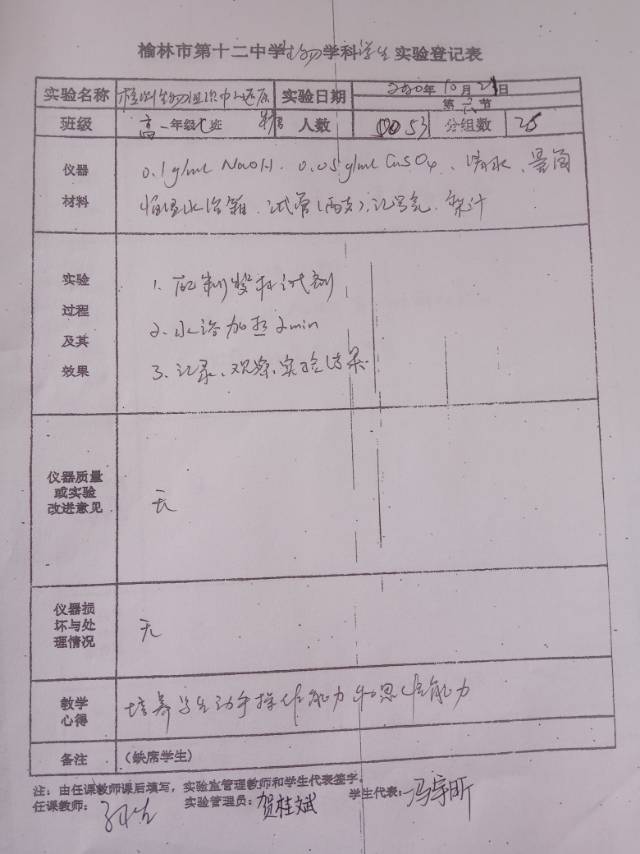 榆林市第十二中学生物学科学生实验登记表
实验名称 检测生物组织中还原 实验日期 2020年10月29日
第六节
班级 高一年级七班 人数 53 分组数 26
仪器材料 0.1g/ml NaOH、0.05g/ml CuSO₄、清水、量筒
恒温水浴箱、试管(两支)、记号笔、梨汁
实验过程及其效果
1. 配制斐林试剂
2. 水浴加热2min
3. 记录、观察、实验结果
仪器质量或实验改进意见 无
仪器损坏与处理情况 无
教学心得 培养学生动手操作能力和思维能力
备注 (缺席学生)
注：由任课教师课后填写，实验室管理教师和学生代表签字。
任课教师： 实验管理员：贺桂斌 学生代表：冯宇昕